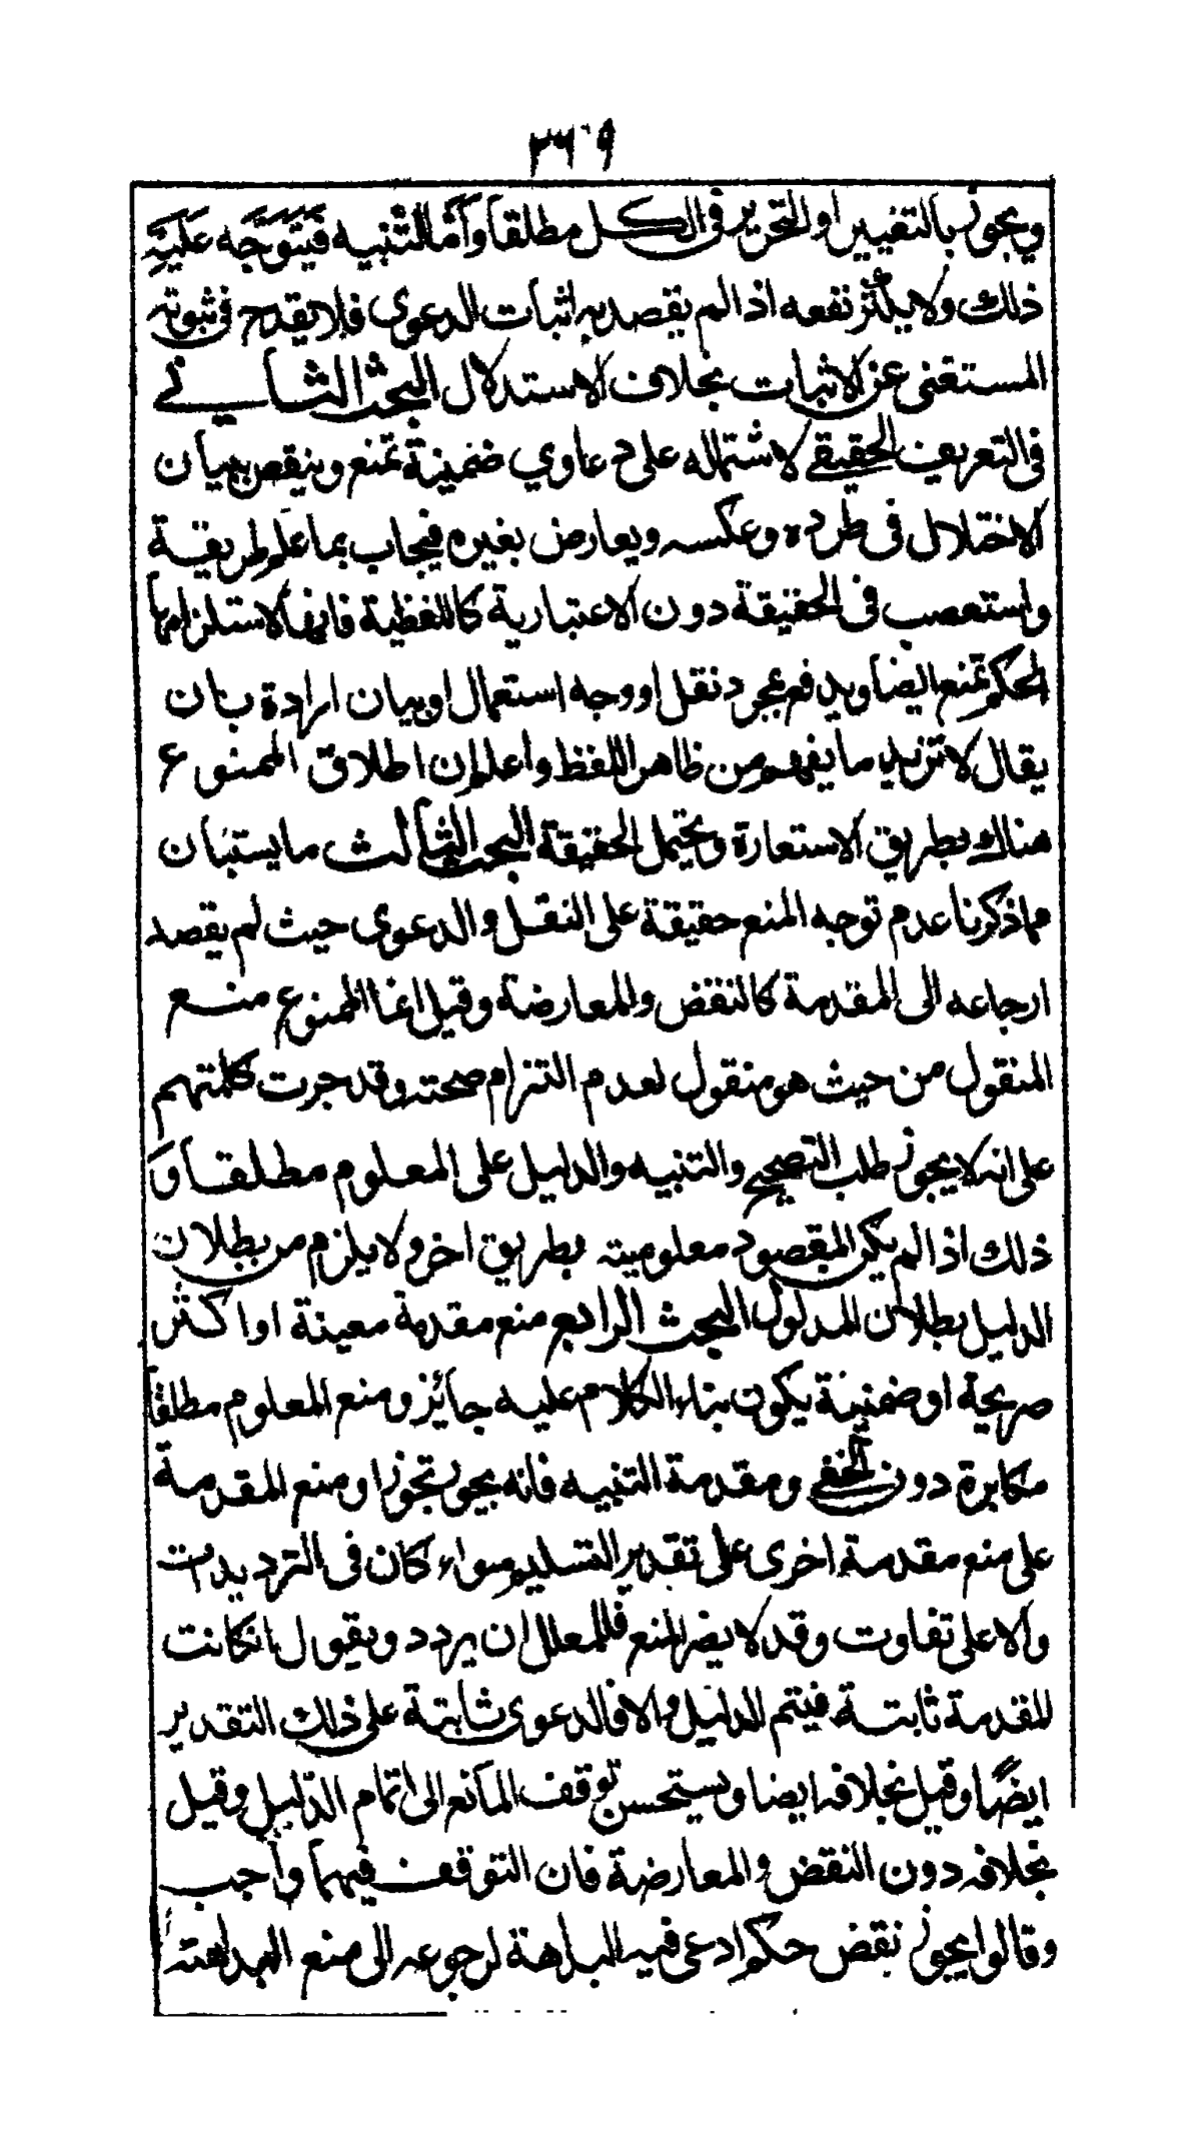 ٣٦٩
ويجوز بالتغيير او التحرير في الكل مطلقا وأما التنبيه فيتوجه عليه
ذلك ولا يكثر نفعه اذا لم يقصد به اثبات الدعوى فلا يقدح في ثبوته
المستغنى عن الاثبات بخلاف الاستدلال البحث الثاني
في التعريف الحقيقي لاشتماله على دعاوي ضمنية تمنع وينقض ببيان
الاختلال في طرده وعكسه ويعارض بغيره فيجاب بما علم طريقة
واستصعب في الحقيقة دون الاعتبارية كاللفظية فانها لاستلزامها
الحكم تمنع ايضا ويدفع بمجرد نقل او وجه استعمال او بيان ارادة بان
يقال لا نريد ما يفهم من ظاهر اللفظ واعلم ان اطلاق الممنوع
هناك بطريق الاستعارة ويحتمل الحقيقة البحث الثالث ما يستبان
مما ذكرنا عدم توجه المنع حقيقة على النقل والدعوى حيث لم يقصد
ارجاعه الى المقدمة كالنقض والمعارضة وقيل انما الممنوع منع
المنقول من حيث هو منقول لعدم التزام صحته وقد جرت كلمتهم
على انه لا يجوز طلب التصحيح والتنبيه والدليل على المعلوم مطلقا و
ذلك اذا لم يكن المقصود معلوميته بطريق اخر ولا يلزم من بطلان
الدليل بطلان المدلول البحث الرابع منع مقدمة معينة او اكثر
صريحة او ضمنية يكون بناء الكلام عليه جائز ومنع المعلوم مطلقا
مكابرة دون الخفي ومقدمة التنبيه فانه يجوز تجوزا ومنع المقدمة
على منع مقدمة اخرى على تقدير التسليم سواء كان في الترديدات
والا على تفاوت وقد لا يضر المنع فللمعلل ان يردد ويقول ان كانت
المقدمة ثابتة فيتم الدليل والا فالدعوى ثابتة على ذلك التقدير
ايضا وقيل بخلافه ايضا ويستحسن توقف المانع الى اتمام الدليل وقيل
بخلافه دون النقض والمعارضة فان التوقف فيهما واجب
وقالوا يجوز نقض حكم ادعى فيه البداهة لرجوعه الى منع البداهة